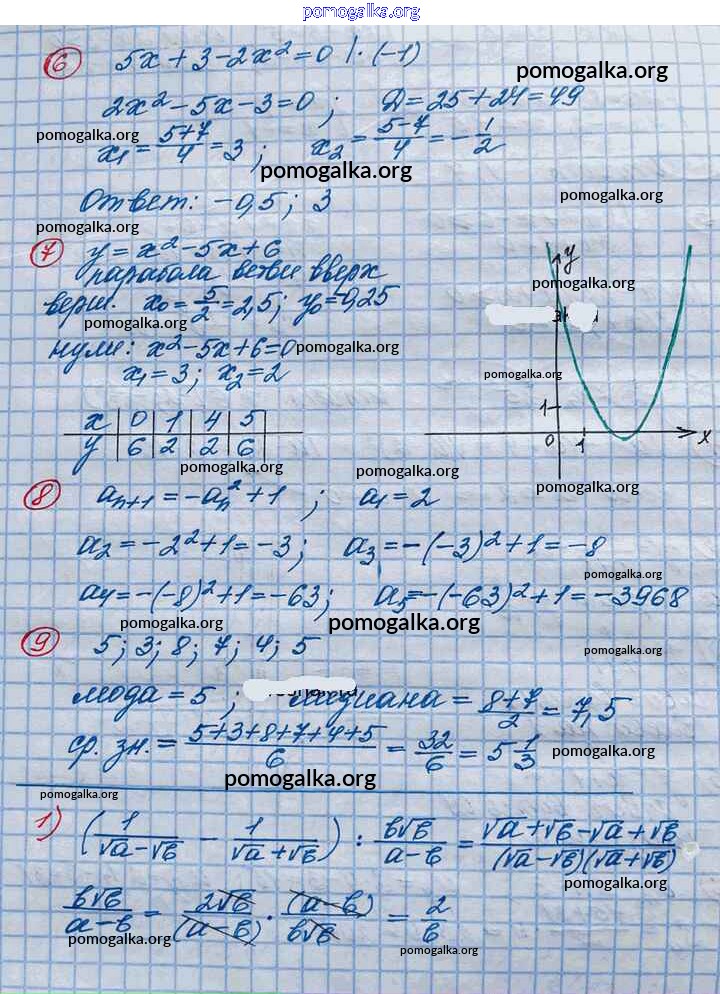 pomogalka.org
6 5x + 3 - 2x² = 0 | · (-1)
pomogalka.org
2x² - 5x - 3 = 0 ; D = 25 + 24 = 49
pomogalka.org
x₁ = (5+7)/4 = 3 ; x₂ = (5-7)/4 = -1/2
pomogalka.org
Ответ: -0,5 ; 3
pomogalka.org
pomogalka.org
7 y = x² - 5x + 6
парабола ветви вверх
верш. x₀ = 5/2 = 2,5 ; y₀ = -0,25
pomogalka.org
нули: x² - 5x + 6 = 0
pomogalka.org
x₁ = 3 ; x₂ = 2
x | 0 | 1 | 4 | 5
y | 6 | 2 | 2 | 6
pomogalka.org
y
pomogalka.org
pomogalka.org
1
0 1 x
pomogalka.org
pomogalka.org
8 aₙ₊₁ = -aₙ² + 1 ; a₁ = 2
a₂ = -2² + 1 = -3 ; a₃ = -(-3)² + 1 = -8
pomogalka.org
a₄ = -(-8)² + 1 = -63 ; a₅ = -(-63)² + 1 = -3968
pomogalka.org
9 5 ; 3 ; 8 ; 7 ; 4 ; 5
pomogalka.org
мода = 5 ; медиана = (8+7)/2 = 7,5
ср. зн. = (5+3+8+7+4+5)/6 = 32/6 = 5 1/3
pomogalka.org
pomogalka.org
pomogalka.org
1) (1/(√a-√b) - 1/(√a+√b)) : b√b/(a-b) = (√a+√b-√a+√b)/((√a-√b)(√a+√b))
pomogalka.org
b√b/(a-b) = 2√b/(a-b) · (a-b)/b√b = 2/b
pomogalka.org
pomogalka.org